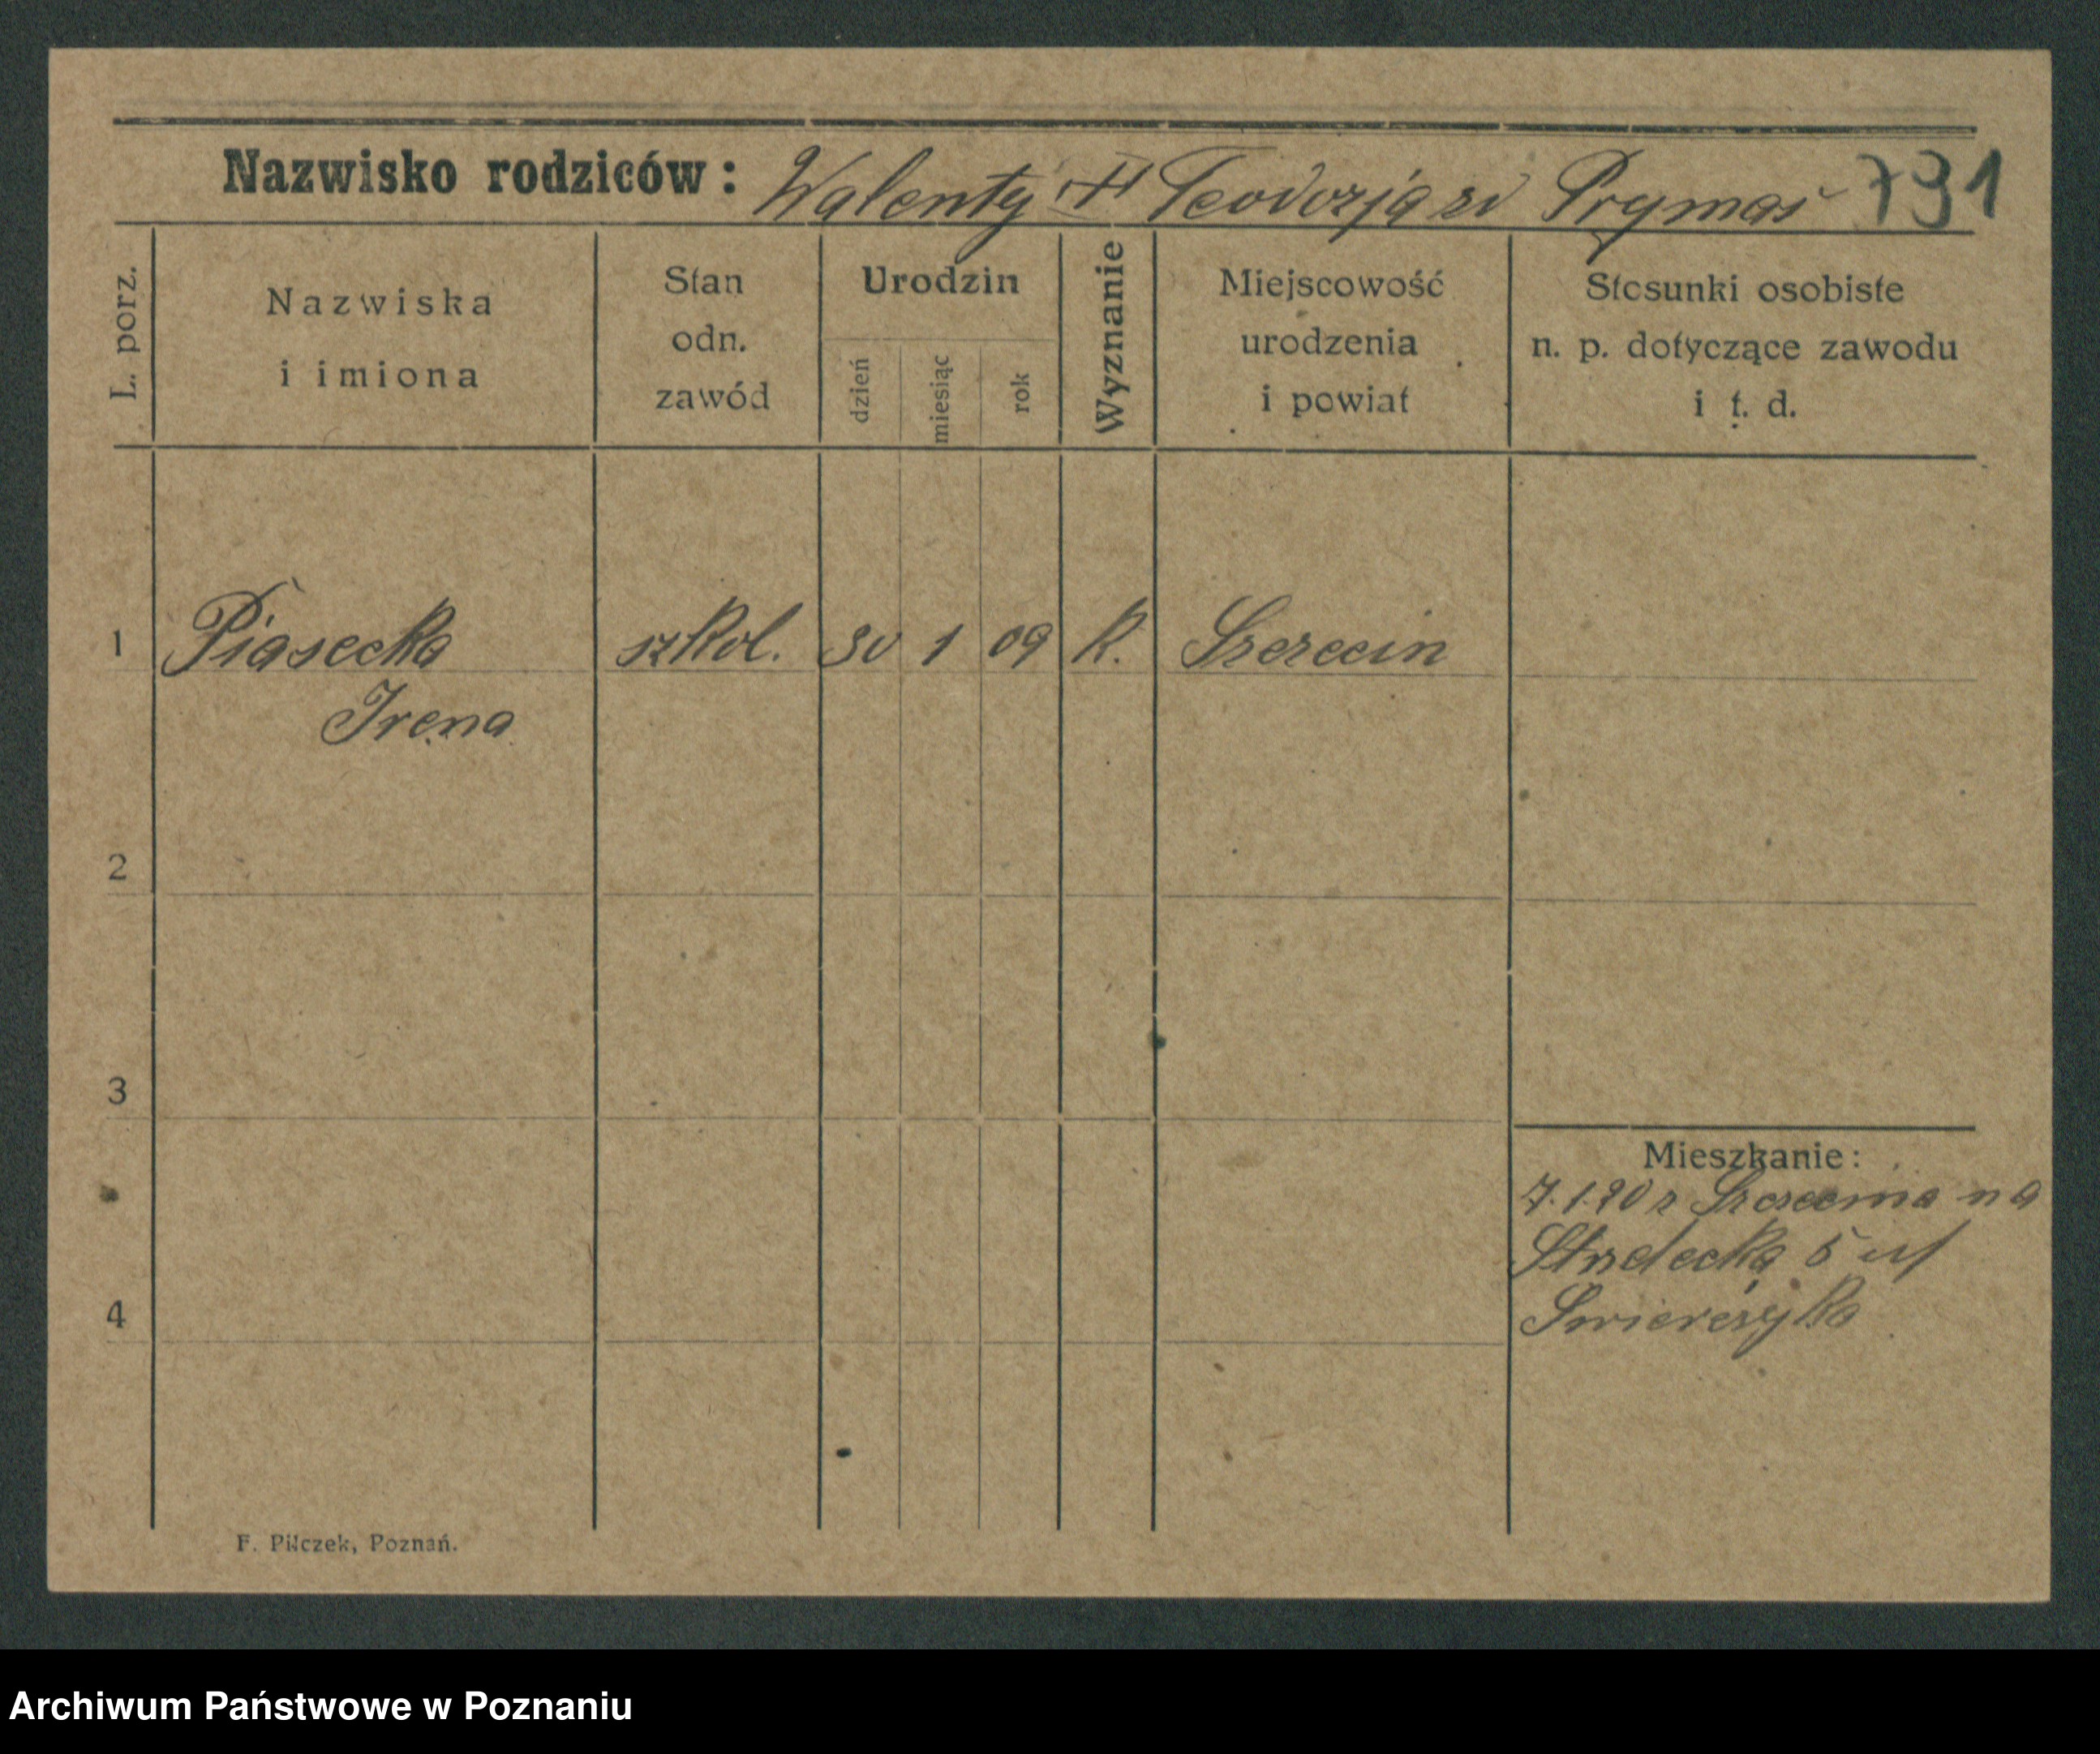 Nazwisko rodziców: Walenty Teodozja zd Prymas 731
L. porz.
Nazwiska
i imiona
Stan
odn.
zawód
Urodzin
dzień
miesiąc
rok
Wyznanie
Miejscowość
urodzenia
i powiat
Stosunki osobiste
n. p. dotyczące zawodu
i t. d.
1 Piasecka szkol. 30 1 09 K. Szczecin
Irena
2
3
Mieszkanie:
7.1.20 z Szczecina na
Strzelecką 5 u/
4
F. Pilczek, Poznań.
Archiwum Państwowe w Poznaniu